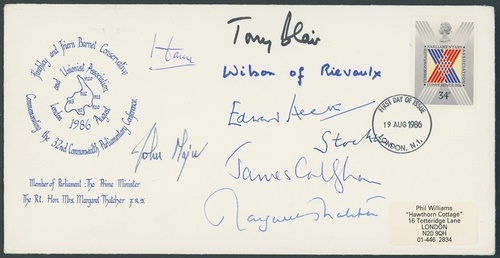 Finchley and Friern Barnet Conservative
and Unionist Association
London
1986
August
Commemorating the 32nd Commonwealth Parliamentary Conference
Member of Parliament: The Prime Minister
The Rt. Hon. Mrs. Margaret Thatcher F.R.S.
Home
Tony Blair
Wilson of Rievaulx
Edward Heath
Stockton
John Major
James Callaghan
Margaret Thatcher
PARLIAMENTARY
ASSOCIATION
34P
FIRST DAY OF ISSUE
19 AUG 1986
LONDON, N.1.
Phil Williams
"Hawthorn Cottage"
16 Totteridge Lane
LONDON
N20 9QH
01-446 2834